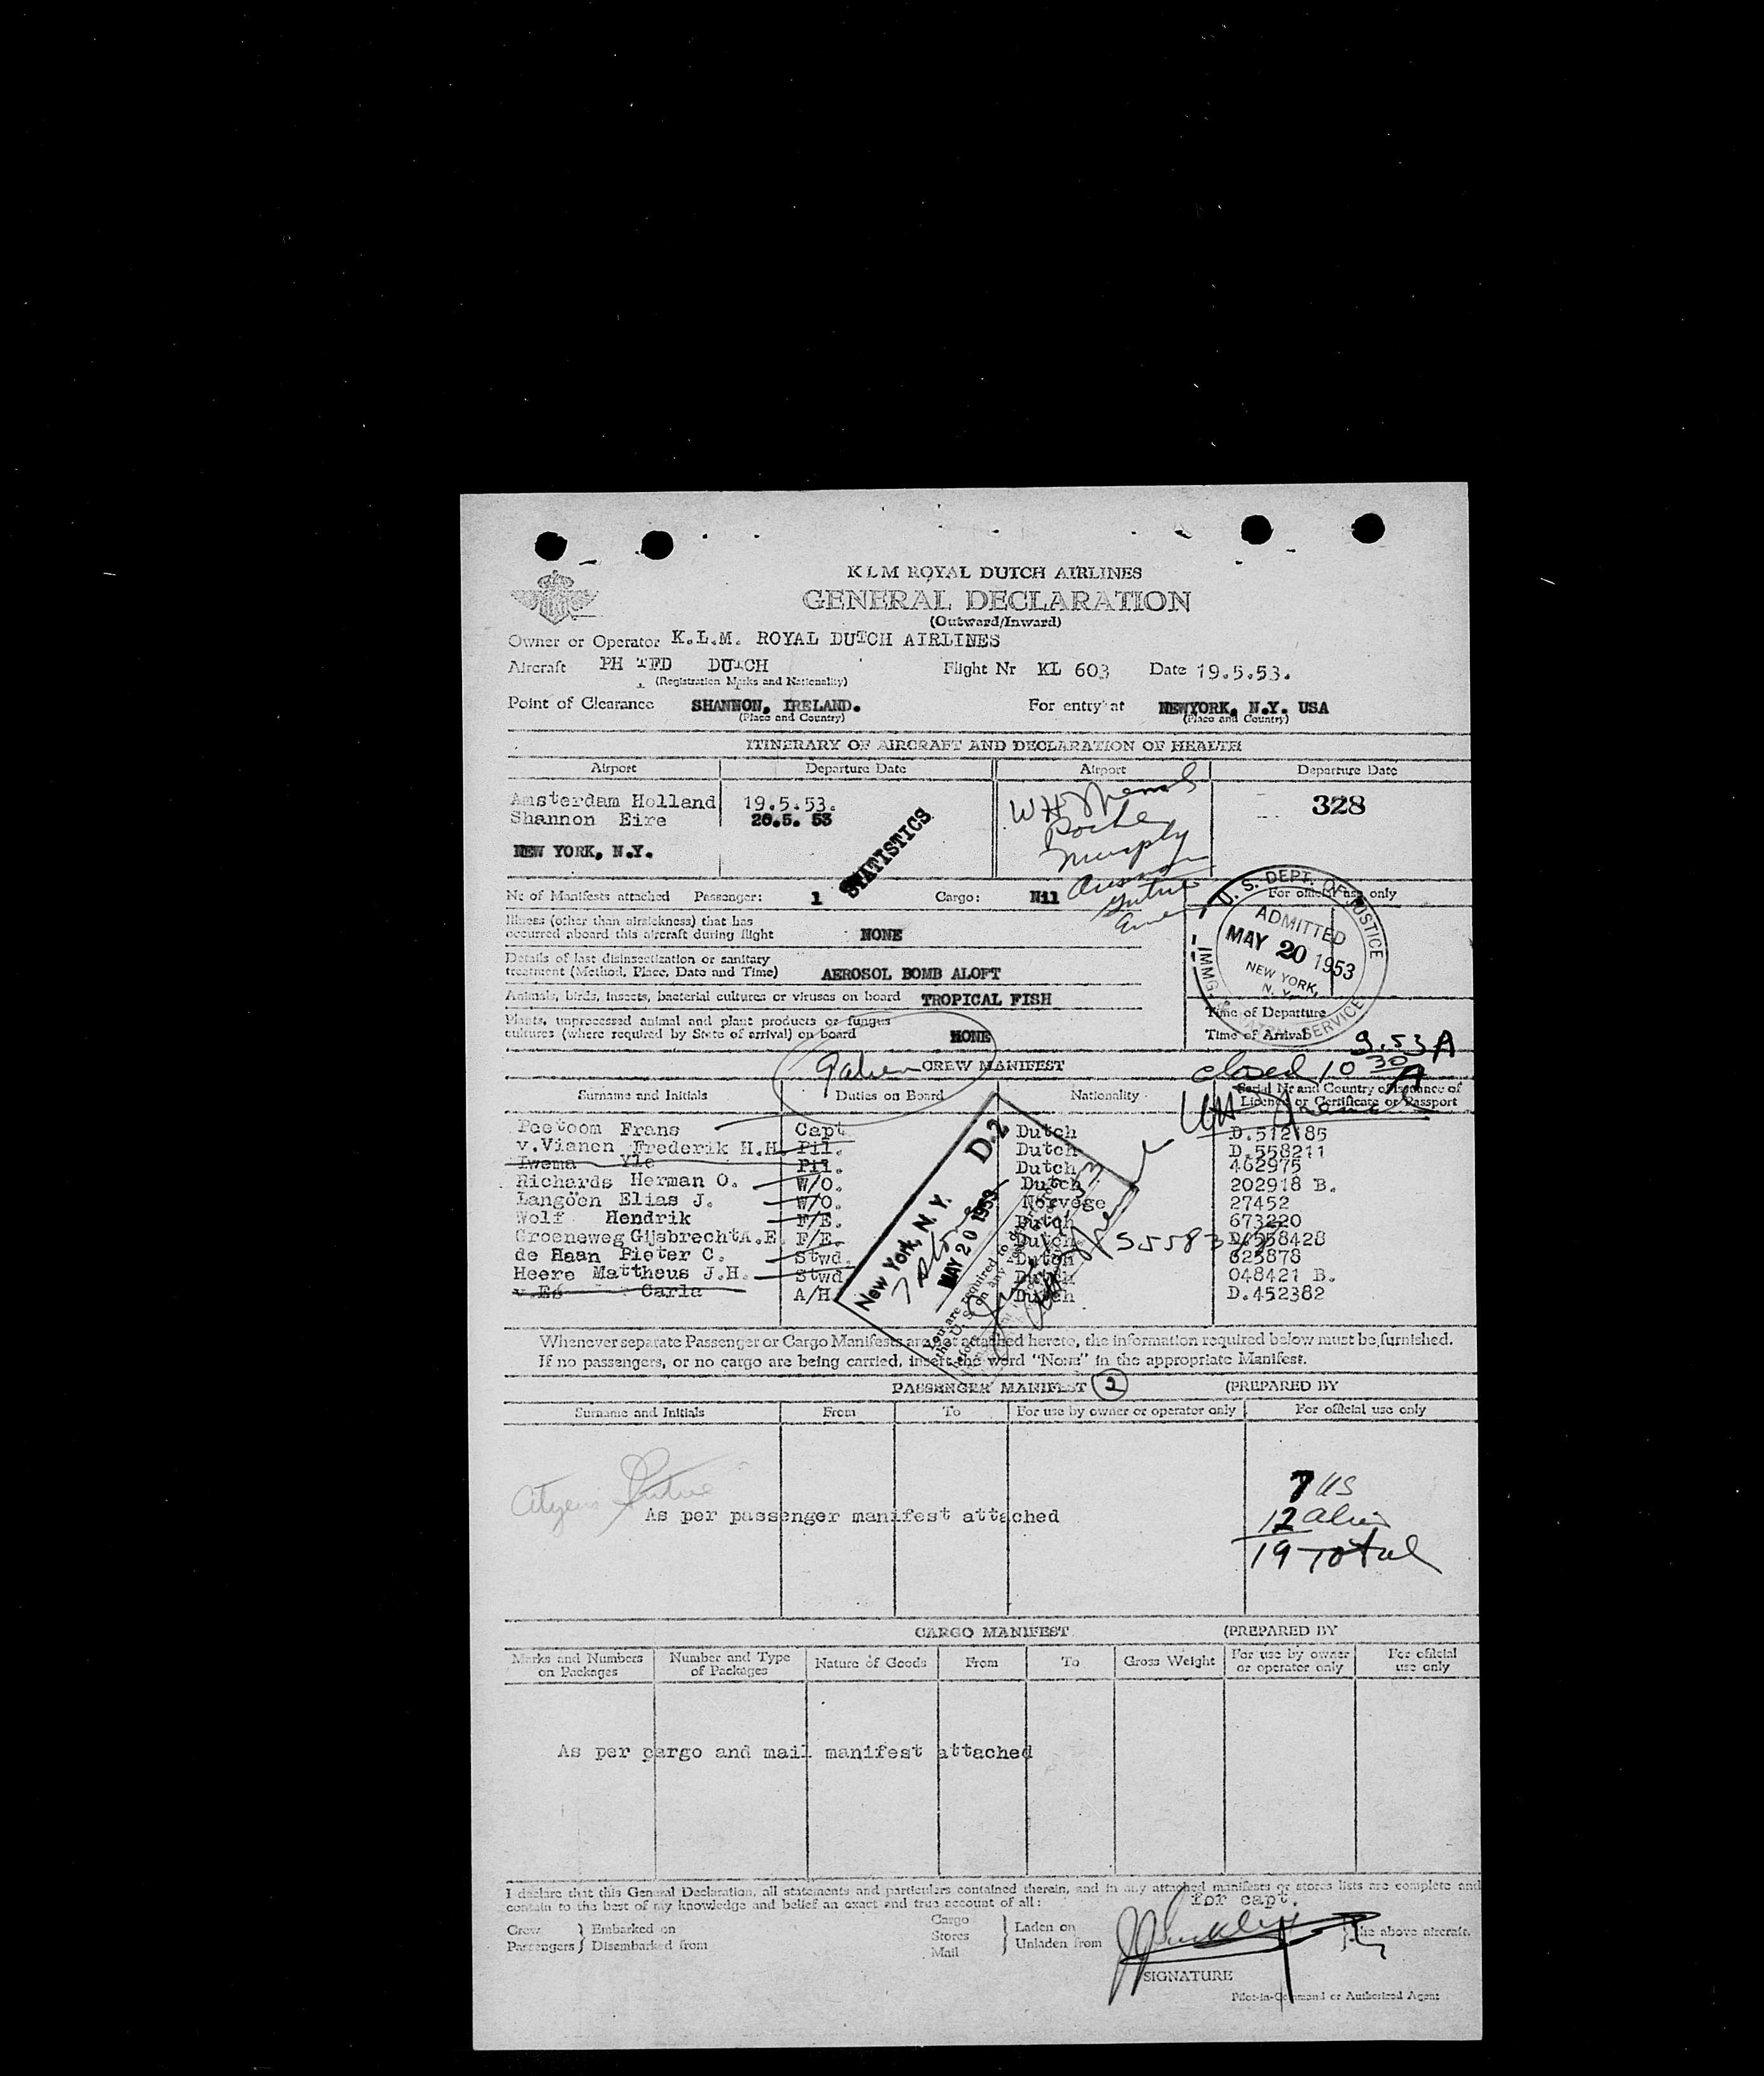 KLM ROYAL DUTCH AIRLINES
GENERAL DECLARATION
(Outward/Inward)
Owner or Operator K.L.M. ROYAL DUTCH AIRLINES
Aircraft PH TFD DUTCH Flight Nr KL 603 Date 19.5.53.
(Registration Marks and Nationality)
Point of Clearance SHANNON, IRELAND. For entry at NEWYORK, N.Y. USA
(Place and Country) (Place and Country)
ITINERARY OF AIRCRAFT AND DECLARATION OF HEALTH
Airport Departure Date Airport Departure Date
Amsterdam Holland 19.5.53. 328
Shannon Eire 20.5. 53
Murphy
NEW YORK, N.Y.
STATISTICS
Nr of Manifests attached Passenger: 1 Cargo: Nil
For official use only
Illness (other than airsickness) that has
occurred aboard this aircraft during flight NONE
U. S. DEPT. OF JUSTICE
ADMITTED
MAY 20 1953
NEW YORK,
N. Y.
SERVICE
Details of last disinsectization or sanitary
treatment (Method, Place, Date and Time) AEROSOL BOMB ALOFT
Animals, birds, insects, bacterial cultures or viruses on board TROPICAL FISH
Plants, unprocessed animal and plant products or fungus
cultures (where required by State of arrival) on board NONE
Time of Departure
Time of Arrival 9.53A
closed 10 30 A
CREW MANIFEST
Surname and Initials Duties on Board Nationality Serial Nr and Country of Issuance of
Licence or Certificate or Passport
Peetoom Frans Capt. Dutch D.512185
v.Vianen Frederik H.H. Pil. Dutch D.558211
Iwema Yle Pil. Dutch 462975
Richards Herman O. W/O. Dutch 202918 B.
Langöen Elias J. W/O. Norvege 27452
Wolf Hendrik F/E. Dutch 673220
Groeneweg GijsbrechtA.E. F/E. Dutch D.558428
de Haan Pieter C. Stwd. Dutch 623878
Heere Mattheus J.H. Stwd. Dutch 048421 B.
v.Es Carla A/H. Dutch D.452382
D.2
New York, N. Y.
MAY 20 1953
Whenever separate Passenger or Cargo Manifests are not attached hereto, the information required below must be furnished.
If no passengers, or no cargo are being carried, insert the word "None" in the appropriate Manifest.
PASSENGER MANIFEST 2 (PREPARED BY
Surname and Initials From To For use by owner or operator only For official use only
7 US
As per passenger manifest attached
12 alien
19 Total
CARGO MANIFEST (PREPARED BY
Marks and Numbers on Packages Number and Type of Packages Nature of Goods From To Gross Weight For use by owner or operator only For official use only
As per cargo and mail manifest attached
I declare that this General Declaration, all statements and particulars contained therein, and in any attached manifests or stores lists are complete and
contain to the best of my knowledge and belief an exact and true account of all:
for capt.
Crew Embarked on Cargo Laden on
Passengers Disembarked from Stores Unladen from the above aircraft.
Mail
SIGNATURE
Pilot-in-Command or Authorized Agent